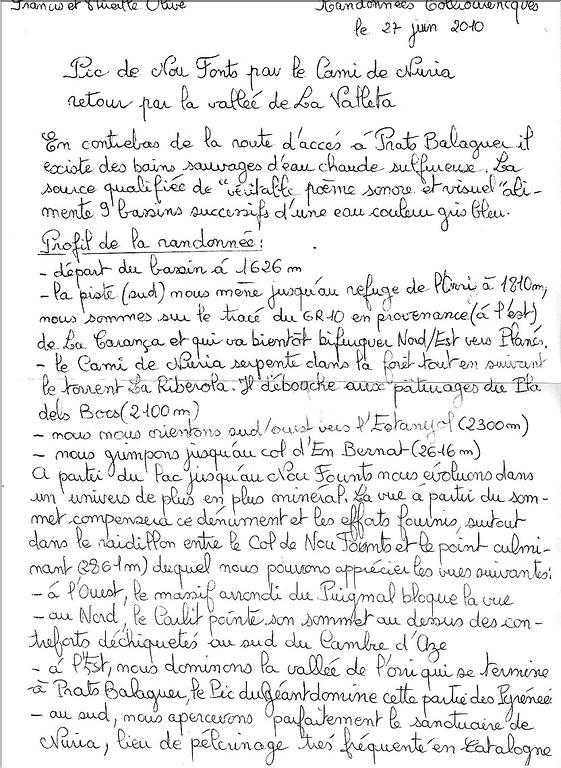 Francis et Mireille Olive Randonnées Colliourencques
le 27 juin 2010
Pic de Nou Fonts par le Cami de Nuria
retour par la vallée de La Valleta
En contrebas de la route d'accés à Prats Balaguer il
existe des bains sauvages d'eau chaude sulfureux. La
source qualifiée de "véritable poème sonore et visuel" ali-
mente 9 bassins successifs d'une eau couleur gris bleu.
Profil de la randonnée:
- départ du bassin à 1626 m
- la piste (sud) nous mène jusqu'au refuge de l'Orri à 1810m,
nous sommes sur le tracé du GR10 en provenance (à l'est)
de La Carança et qui va bientôt bifurquer Nord/Est vers Planés.
- le Cami de Nuria serpente dans la forêt tout en suivant
le torrent La Riberola. Il débouche aux pâturages du Pla
dels Bocs (2100 m)
- nous nous orientons sud/ouest vers l'Estanyol (2300m)
- nous grimpons jusqu'au col d'En Bernat (2616 m)
A partir du lac jusqu'au Nou Founts nous évoluons dans
un univers de plus en plus minéral. La vue a partir du som-
met compensera ce dénument et les efforts fournis, surtout
dans le raidillon entre le Col de Nou Founts et le point culmi-
nant (2861m) duquel nous pouvons apprécier les vues suivantes:
- à l'Ouest, le massif arrondi du Puigmal bloque la vue
- au Nord, le Carlit pointe son sommet au dessus des con-
treforts déchiquetés au sud du Cambre d'Aze
- à l'Est, nous dominons la vallée de l'orri qui se termine
à Prats Balaguer, le Pic du Géant domine cette partie des Pyrénées
- au sud, nous apercevons parfaitement le sanctuaire de
Nuria, lieu de pélerinage très fréquenté en Catalogne